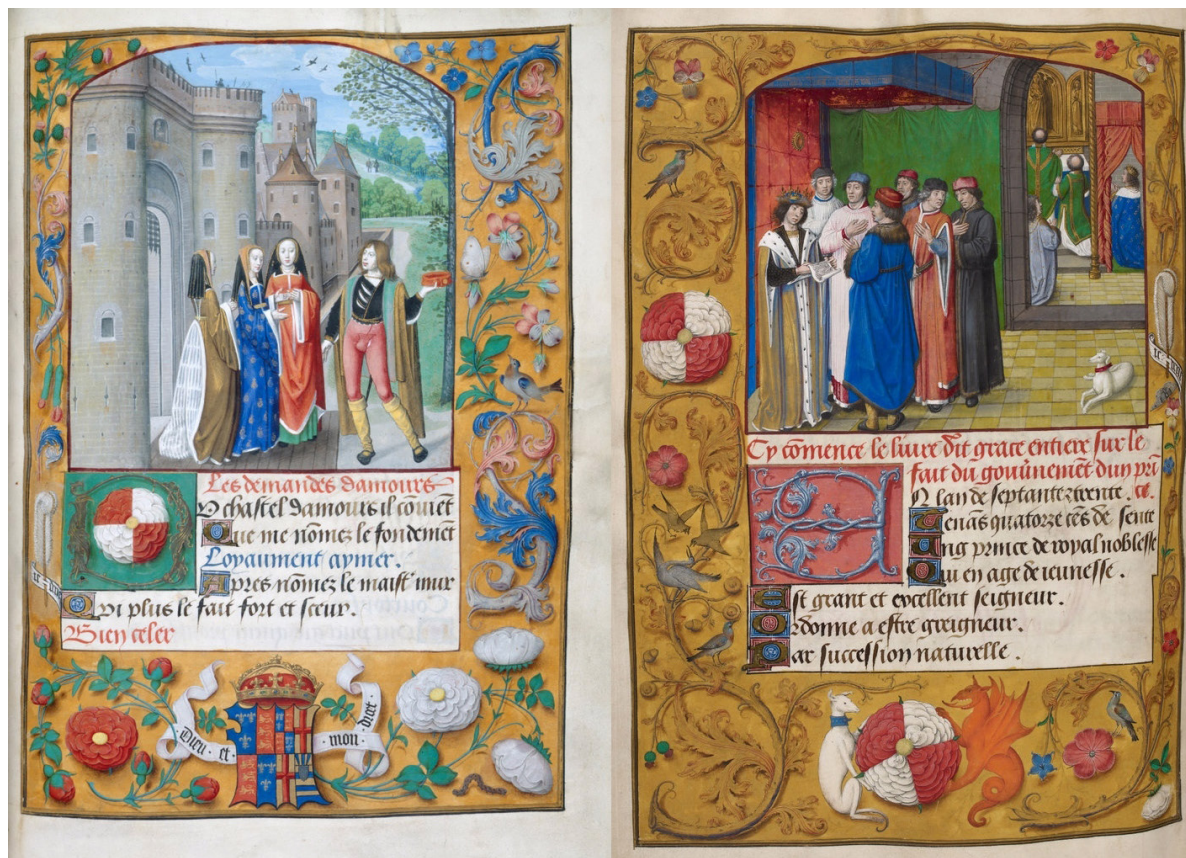 Les demandes damours
Du chastel damours il cōuiēt
Que me nōmez le fondemēt
Loyaument aymer.
Apres nōmez le maistꝰ mur
Qui plus le fait fort et seeur.
Bien celer
Dieu · et · mon · droit ·
Cy cōmence le liure dit grace entiere sur le
fait du gouuˀnemēt dun prī
ce.
En lan de septante z trente .
Tenās quatorze cēs de sente
Ung prince de royal noblesse
Qui en age de ieunesse .
Est grant et excellent seigneur .
Ordonne a estre greigneur .
Par succession naturelle .